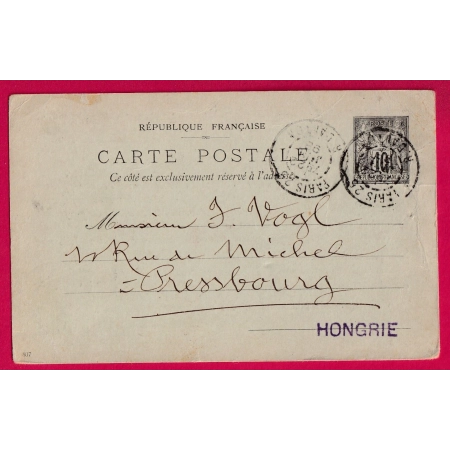 RÉPUBLIQUE FRANÇAISE
CARTE POSTALE
Ce côté est exclusivement réservé à l'adresse
Monsieur J. Vogl
Rue de Michel
Pressbourg
HONGRIE
PARIS
PARIS
10